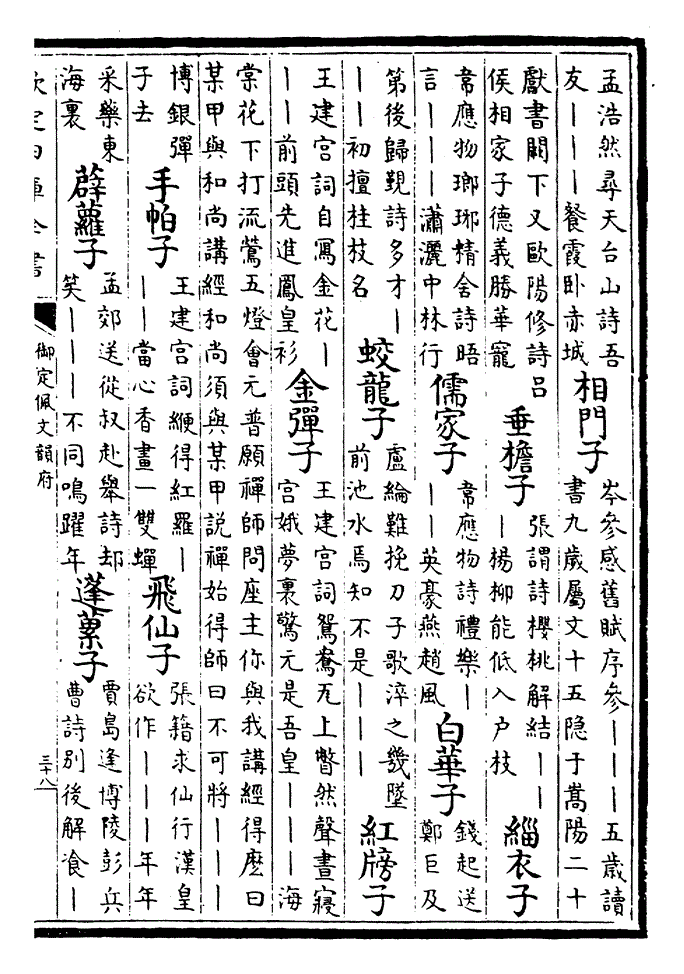 孟浩然尋天台山詩吾
友———餐霞卧赤城
相門子
岑參感舊賦序參———五歲讀
書九歲屬文十五隐于嵩陽二十
獻書闕下又歐陽修詩吕
侯相家子德義勝華寵
垂檐子
張謂詩櫻桃解結——
—楊柳能低入户枝
緇衣子
韋應物瑯琊精舍詩晤
言———瀟灑中林行
儒家子
韋應物詩禮樂—
——英豪燕趙風
白華子
錢起送
鄭巨及
第後歸覲詩多才—
——初擅桂枝名
蛟龍子
盧綸難挽刀子歌淬之幾墜
前池水焉知不是———
紅牓子
王建宫詞自寫金花—
——前頭先進鳳皇衫
金彈子
王建宫詞鴛鴦瓦上瞥然聲晝寢
宫娥夢裏驚元是吾皇———海
棠花下打流鶯五燈會元普願禪師問座主你與我講經得麽曰
某甲與和尚講經和尚須與某甲說禪始得師曰不可將———
博銀彈
子去
手帕子
王建宫詞緶得紅羅—
——當心香畫一雙蟬
飛仙子
張籍求仙行漢皇
欲作———年年
采藥東
海裏
薜蘿子
孟郊送從叔赴舉詩却
笑———不同鳴躍年
蓬藟子
賈島逢博陵彭兵
曹詩别後解飡—
欽定四庫全書
御定佩文韻府
三十八